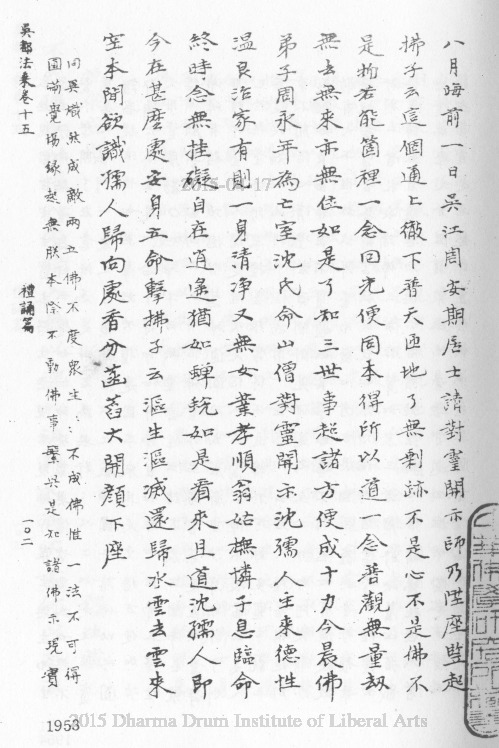 八月晦前一日吳江周安期居士請對靈開示師乃陞座豎起
拂子云這個通上徹下普天匝地了無剩跡不是心不是佛不
是物若能箇裡一念回光便同本得所以道一念普觀無量劫
無去無來亦無住如是了知三世事超諸方便成十力今晨佛
弟子周永年為亡室沈氏命山僧對靈開示沈孺人生來德性
溫良治家有則一身清淨又無女業孝順翁姑撫憐子息臨命
終時念無挂礙自在逍遙猶如蟬蛻如是看來且道沈孺人即
今在甚麼處安身立命擊拂子云漚生漚滅還歸水雲去雲來
空本閒欲識孺人歸向處香分菡萏大開顏下座
同異熾然成敵兩立佛不度眾生眾生不成佛惟一法不可得
圓滿覺場緣起無朕本際不動佛事繁興是知諸佛示現實
吳都法乘卷十五
禮誦篇
一〇二
1953
2015-04-17
2015 Dharma Drum Institute of Liberal Arts